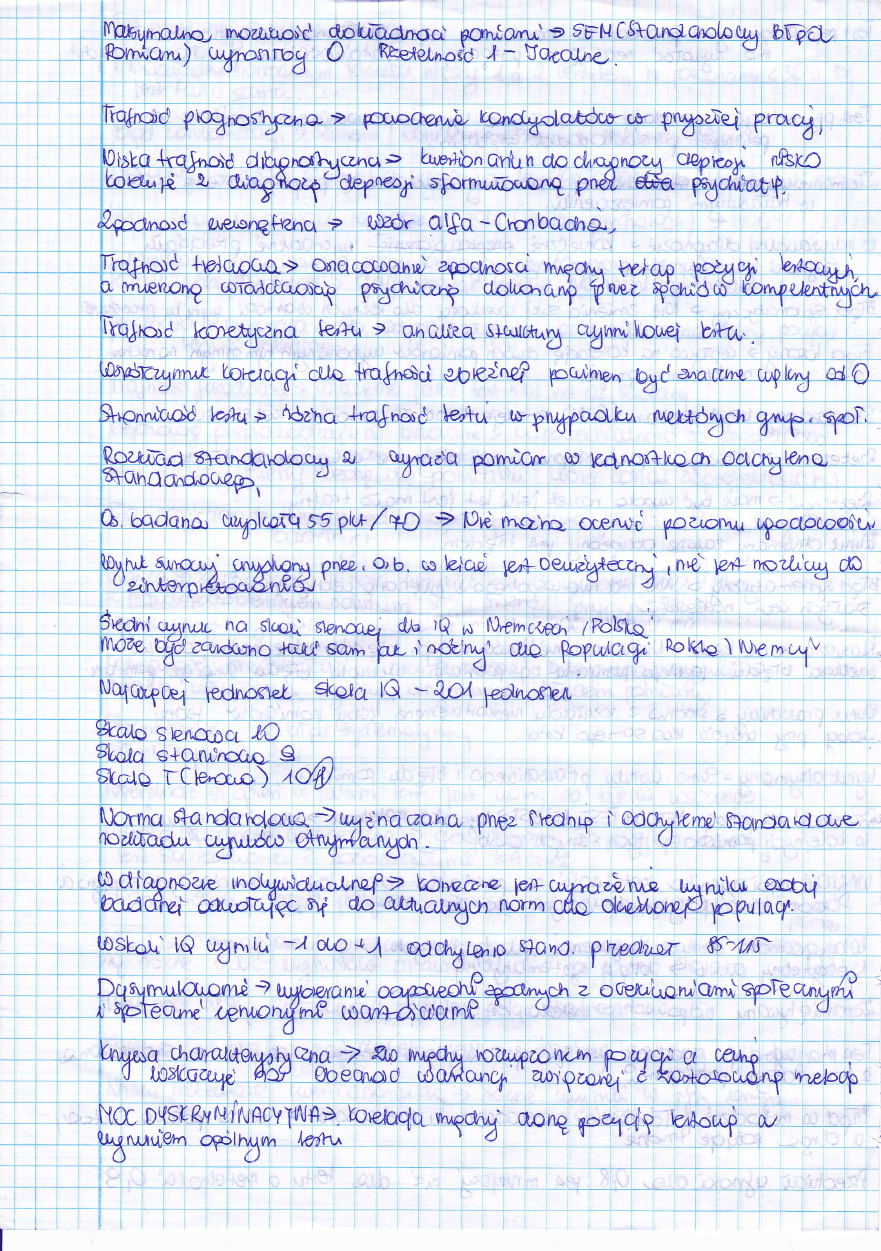 Maksymalna możliwość dokładności pomiaru → SEM (Standardowy Błąd
Pomiaru) wynosiłby 0 Rzetelność 1 – Idealne.
Trafność prognostyczna → powodzenie kandydatów w przyszłej pracy,
Niska trafność diagnostyczna → kwestionariusz do diagnozy depresji nisko
koreluje z diagnozą depresji sformułowaną przez psychiatrę.
Zgodność wewnętrzna → wzór alfa-Cronbacha,
Trafność treściowa → oszacowanie zgodności między treścią pozycji testowych,
a mierzoną właściwością psychiczną dokonaną przez sędziów kompetentnych.
Trafność teoretyczna testu → analiza struktury czynnikowej testu.
Współczynnik korelacji dla trafności zbieżnej powinien być znacznie większy od 0
Stronniczość testu → różna trafność testu w przypadku niektórych grup. społ.
Rozkład standardowy z wyraża pomiar w jednostkach odchylenia
standardowego,
Os. badana uzyskała 55 pkt/70 → Nie można ocenić poziomu ugodowości
Wynik surowy uzyskany przez o.b. w teście jest bezużyteczny, nie jest możliwy do
zinterpretowania
Średni wynik na skali stenowej dla IQ w Niemczech / Polska
może być zarówno taki sam jak i różny dla populacji Polska / Niemcy
Najwięcej jednostek skala IQ – 201 jednostek
Skala stenowa 10
Skala staninowa 9
Skala T (tenowa) 101
Norma standardowa → wyznaczana przez średnią i odchylenie standardowe
rozkładu wyników otrzymanych.
W diagnozie indywidualnej → konieczne jest wyrażenie wyniku osoby
badanej odwołując się do aktualnych norm dla określonej populacji.
W skali IQ wyniki -1 do +1 odchylenia stand. przedział 85-115
Dysymulowanie → wybieranie odpowiedzi zgodnych z oczekiwaniami społecznymi
i społecznie cenionymi wartościami
Krzywa charakterystyczna → zw między rozwiązaniem pozycji a cechą
wskazuje obecność wariancji związanej z zastosowaną metodą
MOC DYSKRYMINACYJNA → korelacja między daną pozycją testową a
wynikiem ogólnym testu